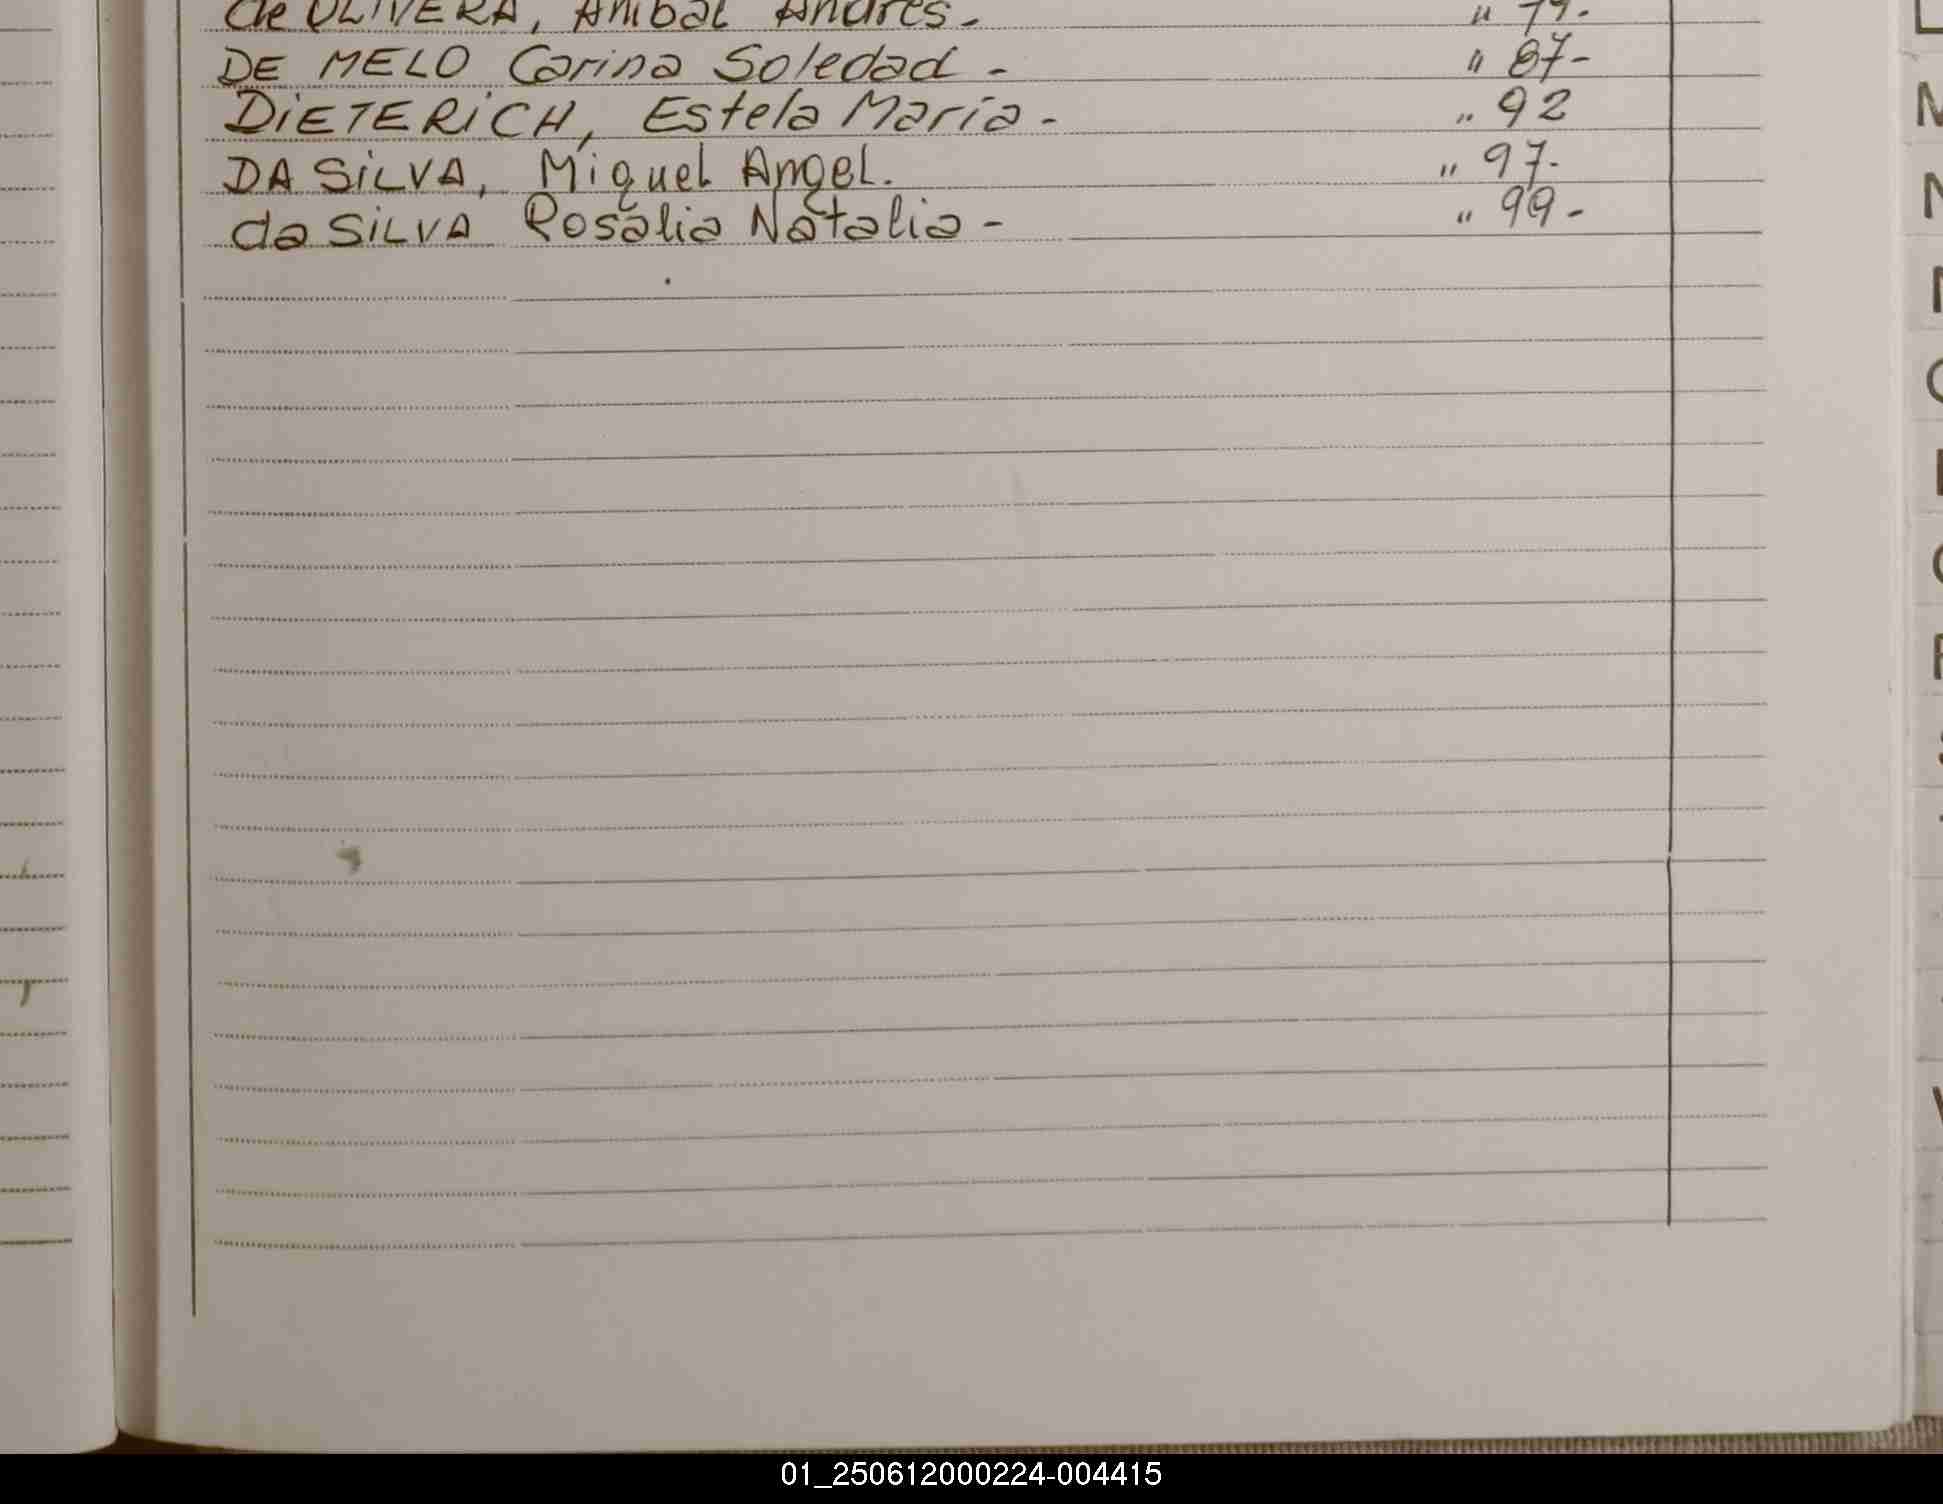 de OLIVERA, Anibal Andres- " 79-
DE MELO Carina Soledad - " 87-
DiETERiCH, Estela Maria- " 92
DA SiLVA, Miguel Angel. " 97-
da SiLVA Rosalia Natalia- " 99-
01_250612000224-004415